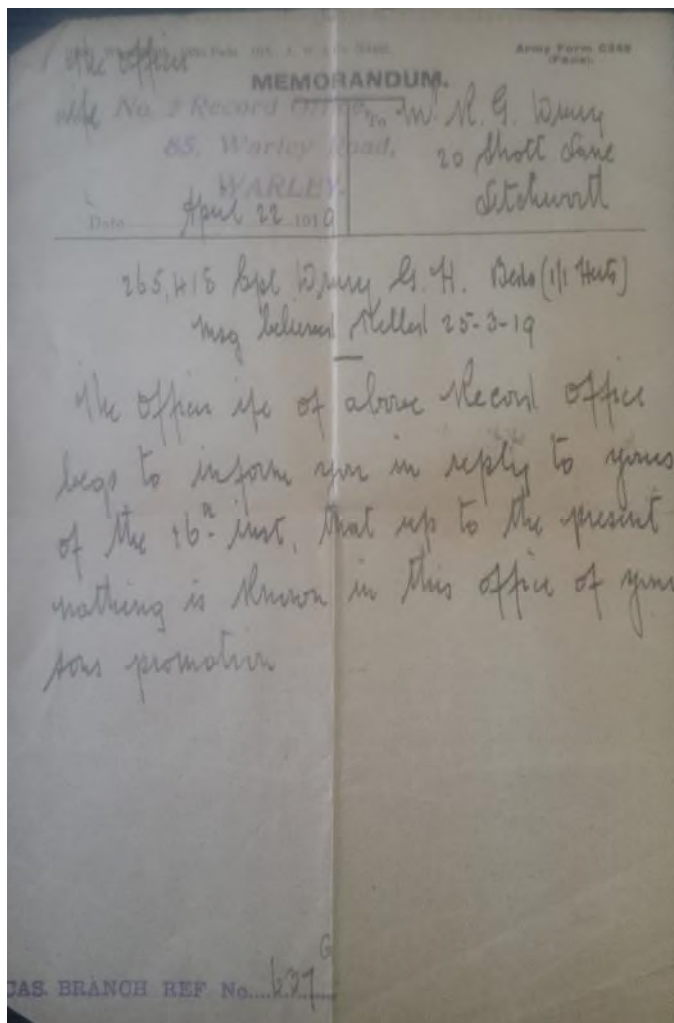 The Officer
Army Form C348
(Pads).
MEMORANDUM.
i/c No. 2 Record Office,
To Mr. R. G. Drury
85, Warley Road,
20 Shott Lane
WARLEY.
Letchworth
Date April 22 191
265,418 Cpl Drury G. H. Beds (1/1 Herts)
Msg believed Killed 25-3-19
The Officer i/c of above Record Office
begs to inform you in reply to yours
of the 16th inst, that up to the present
nothing is known in this office of your
sons promotion
CAS. BRANCH REF No. 627
G